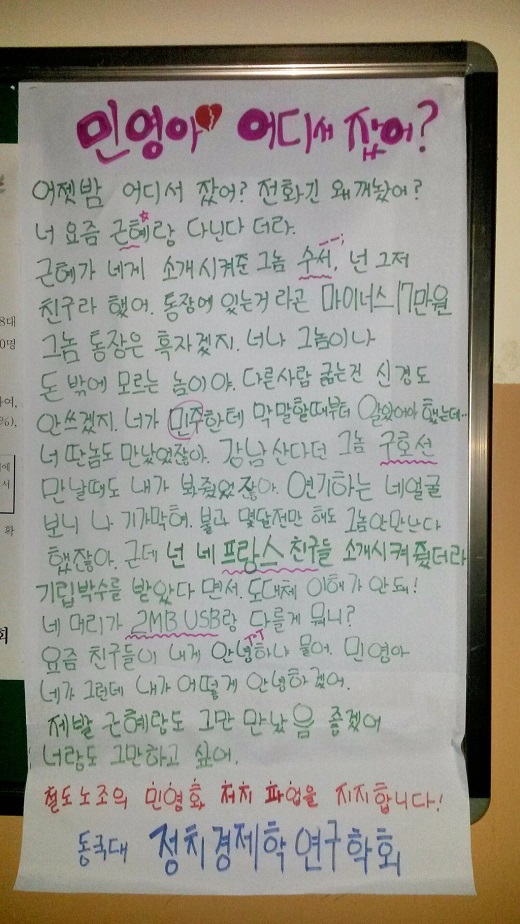 민영아 어디서 잤어?
어젯밤 어디서 잤어? 전화긴 왜 꺼놨어?
너 요즘 근혜랑 다닌다 더라.
근혜가 네게 소개시켜준 그놈 수서, 넌 그저
친구라 했어. 통장에 있는거 라곤 마이너스 17만원
그놈 통장은 흑자겠지. 너나 그놈이나
돈 밖에 모르는 놈이야. 다른사람 굶는건 신경도
안쓰겠지. 너가 민주한테 막말할때부터 알았어야 했는데..
너 딴놈도 만났었잖아. 강남 산다던 그놈 구호선
만날때도 내가 봐줬었잖아. 연기하는 네얼굴
보니 나 기가막혀. 불과 몇달전만 해도 그놈안만난다
했잖아. 근데 넌 네 프랑스 친구들 소개시켜 줬더라
기립박수를 받았다 면서. 도대체 이해가 안돼!
네 머리가 2MB USB랑 다를게 뭐니?
요즘 친구들이 내게 안녕하냐 물어. 민영아
네가 그런데 내가 어떻게 안녕하겠어.
제발 근혜랑도 그만 만났음 좋겠어
너랑도 그만하고 싶어.
철도노조의 민영화 저지 파업을 지지합니다!
동국대 정치경제학연구학회